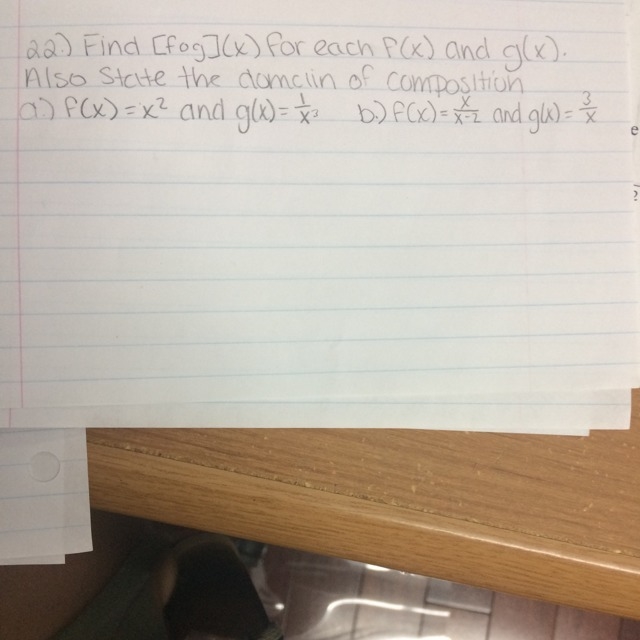 22.) Find [fog](x) for each f(x) and g(x).
Also State the domain of composition
a.) f(x) = x² and g(x) = 1/x³ b.) f(x) = x/x-2 and g(x) = 3/x
e